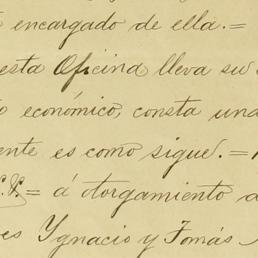 encargado de ella.=
esta Oficina lleva su
económico, consta una
ente es como sigue.=
= á otorgamiento
es Ygnacio y Tomás